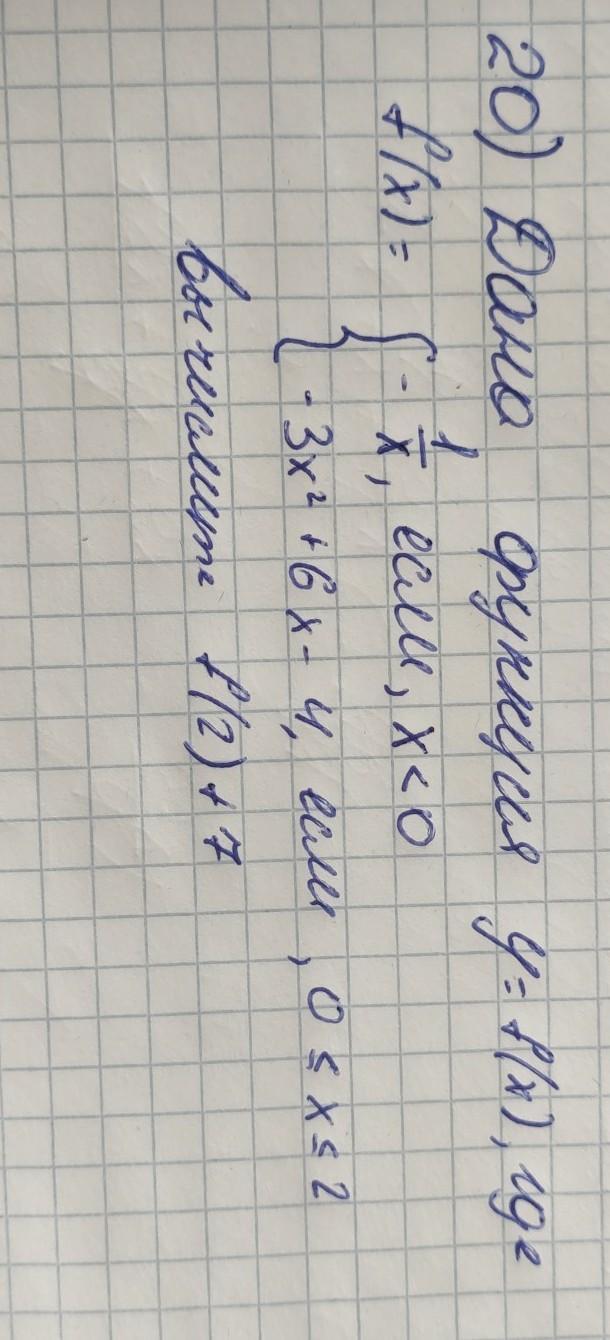 20) Дана функция y = f(x), где
f(x) = { - 1/x, если, x < 0
{ - 3x² + 6x - 4, если, 0 ≤ x ≤ 2
Вычислить f(2) + 7